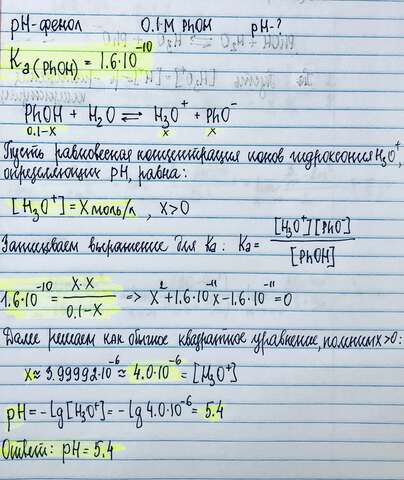 pH-фенол 0.1 M PhOH pH-?
Ka(PhOH) = 1.6·10⁻¹⁰
PhOH + H₂O ⇌ H₃O⁺ + PhO⁻
0.1-x x x
Пусть равновесная концентрация ионов гидроксония H₃O⁺,
определяющих pH, равна:
[H₃O⁺] = x моль/л, x>0
Записываем выражение для Ka: Ka = [H₃O⁺][PhO⁻] / [PhOH]
1.6·10⁻¹⁰ = x·x / 0.1-x => x² + 1.6·10⁻¹⁰x - 1.6·10⁻¹¹ = 0
Далее решаем как обычное квадратное уравнение, помним x>0:
x ≈ 3.99992·10⁻⁶ ≈ 4.0·10⁻⁶ = [H₃O⁺]
pH = -lg[H₃O⁺] = -lg 4.0·10⁻⁶ = 5.4
Ответ: pH = 5.4